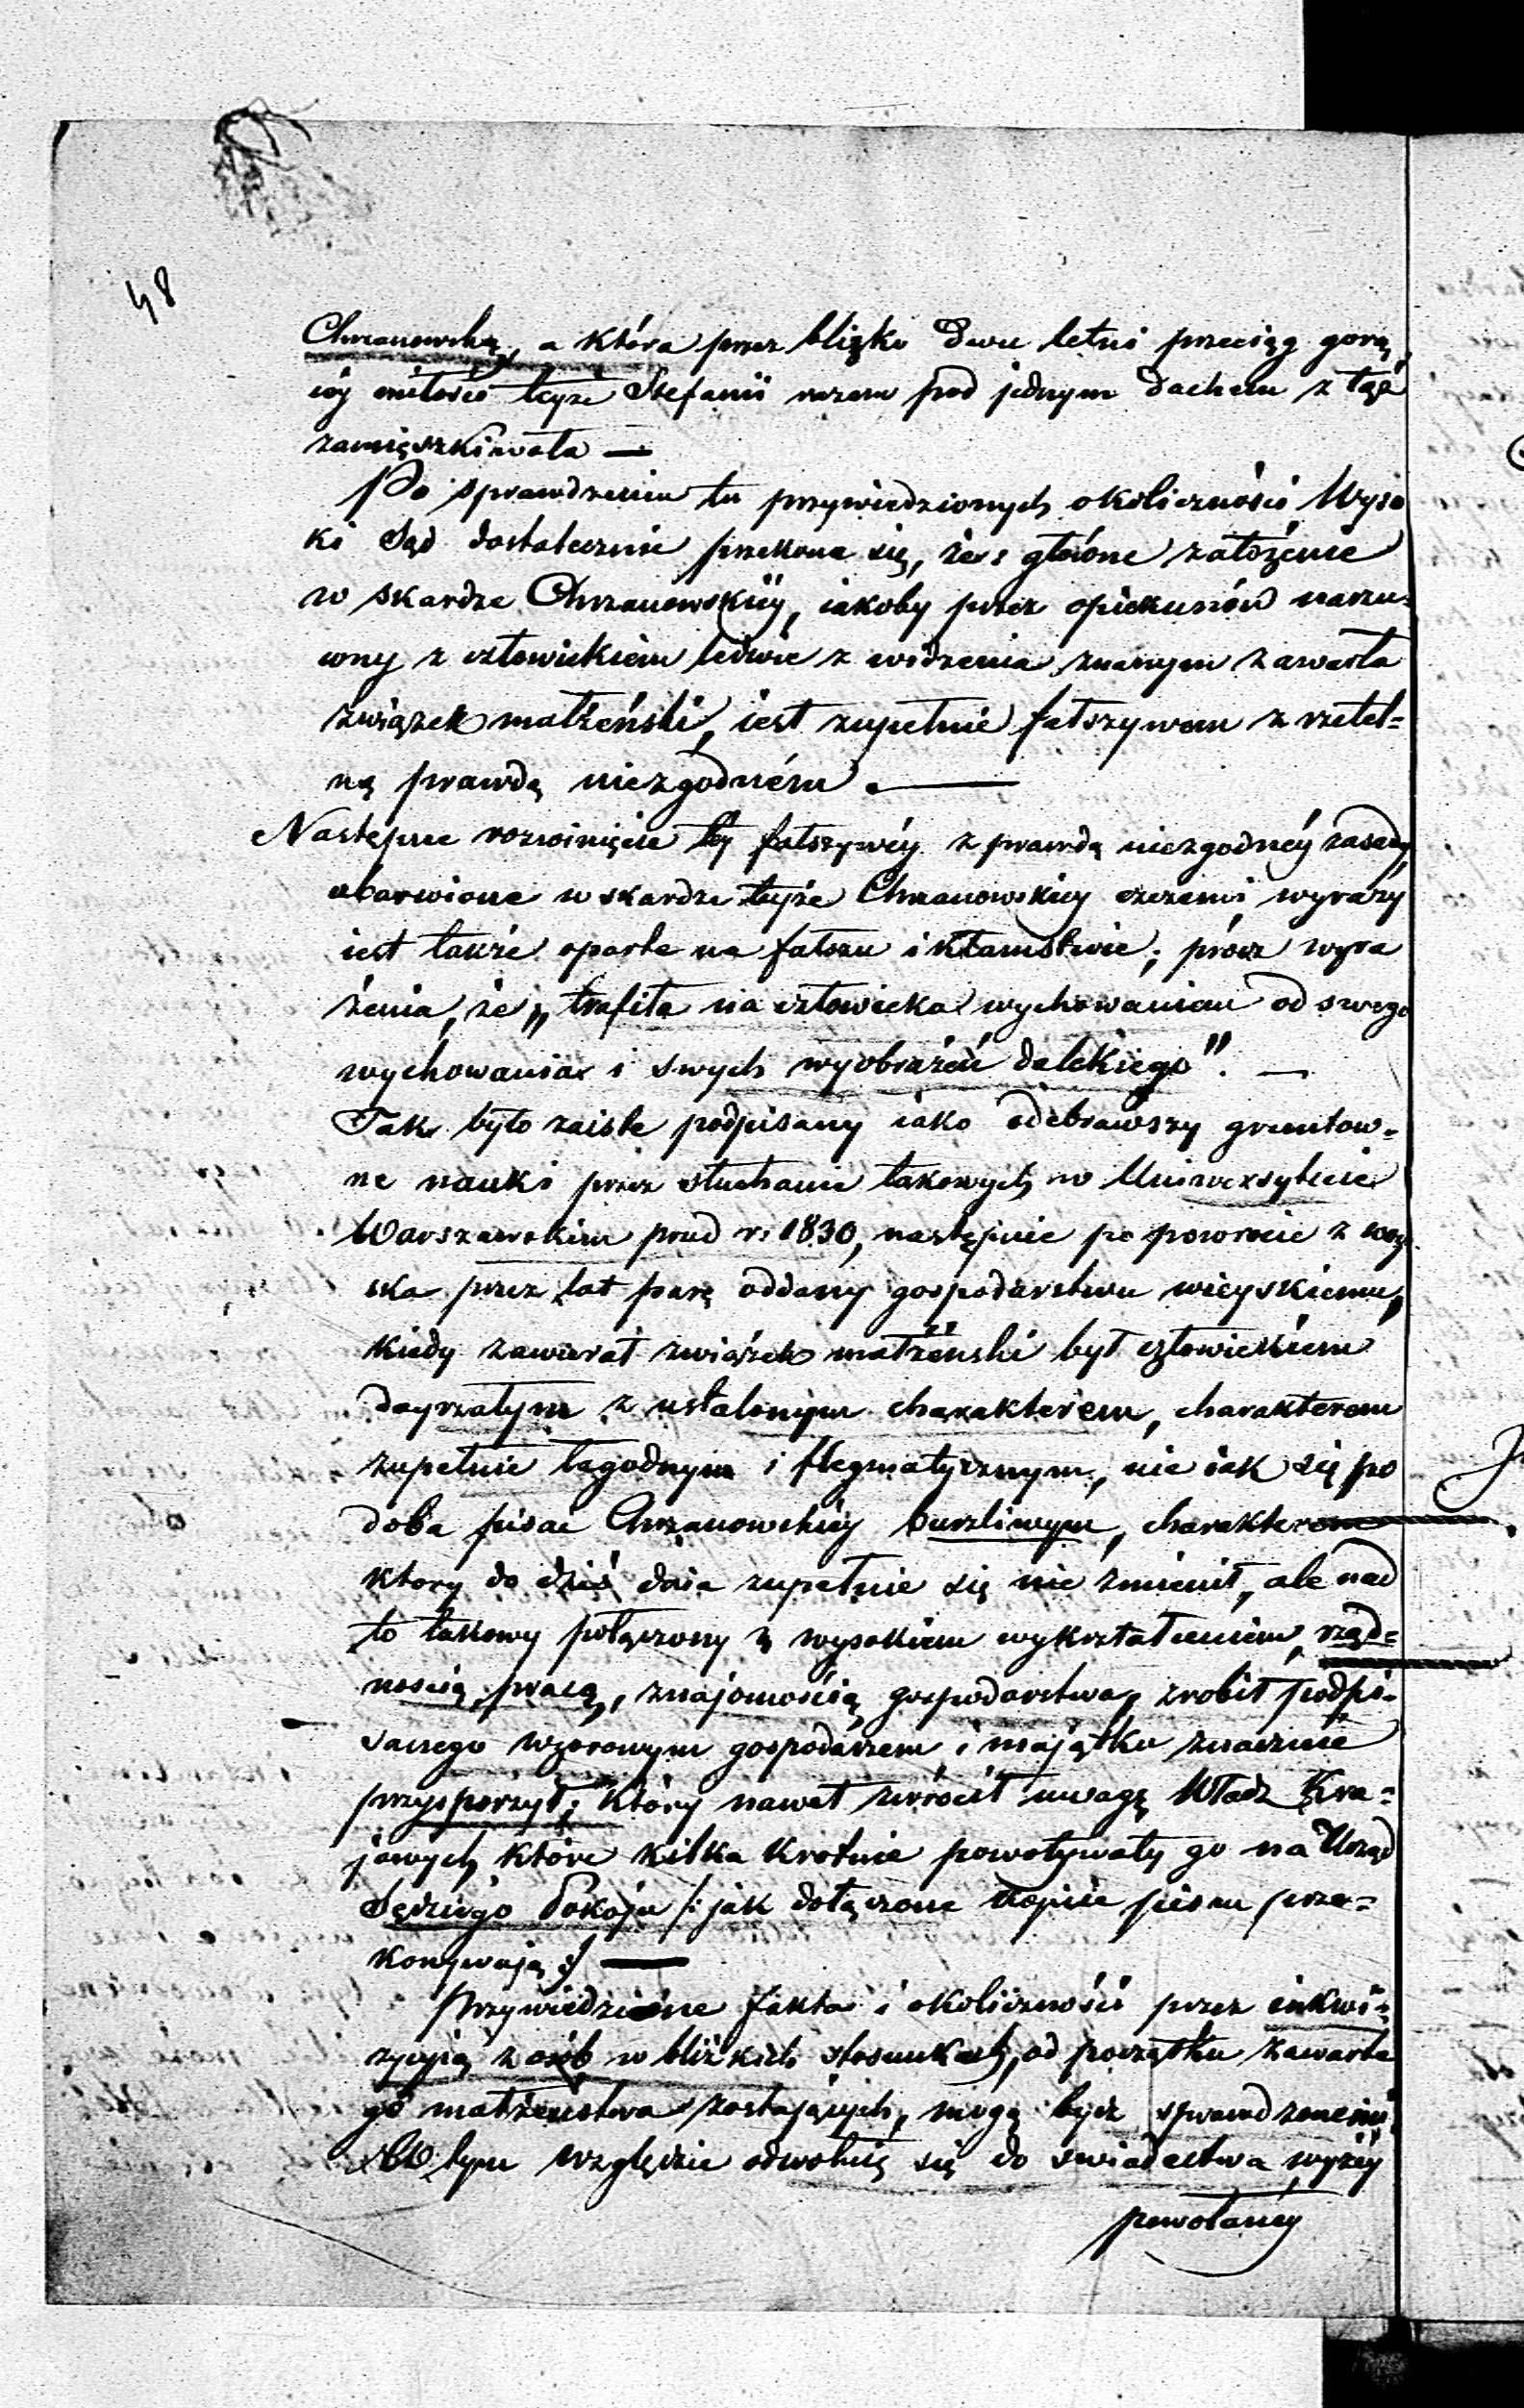 48
Chrzanowską, a która przez blizko dwu letni przeciąg gorą
céj miłości tejże Stefanii razem pod jednym dachem z tąż
zamięszkiwała —
Po sprawdzeniu tu przywiedzionych okoliczności Wyso
ki Sąd dostatecznie przekona się, że: główne założenie
w skardze Chrzanowskiéy, iakoby przez opiekunów narzu-
cony z człowiekiem ledwie z widzenia znanym zawarła
związek małżeński, iest zupełnie fałszywem z rzetel-
ną prawdą niezgodném. —
Następne rozwinięcie téy fałszywéy z prawdą niezgodnéy zasady
ubarwione w skardze tejże Chrzanowskiey czczemi wyrazy
iest także oparte na fałszu i kłamstwie; prócz wyra
żenia, że „trafiła na człowieka wychowaniem od swego
wychowania i swych wyobrażeń dalekiego". —
Tak było zaiste podpisany iako odebrawszy gruntow-
ne nauki przez słuchanie takowych w Uniwersytecie
Warszawskim przed r. 1830, następnie po powrocie z woy
ska przez lat parę oddany gospodarstwu wieyskiemu,
kiedy zawierał związek małżeński był człowiekiem
doyrzałym z ustalonym charakterem, charakterem
zupełnie łagodnym i flegmatycznym, nie iak się po
doba pisać Chrzanowskiéy burzliwym, charakterem
ktory do dziś dnia zupełnie się nie zmienił, ale nad
to takowy połączony z wysokiem wykształceniem, rząd-
nością, pracą, znajomością gospodarstwa, zrobił podpi-
sanego wzorowym gospodarzem i majątku znacznie
przysporzył; który nawet zwrócił uwagę Władz Kra-
jowych, które kilka krotnie powoływały go na Urząd
Sędziego Pokoju /: jak dołączone kopiie pisma prze-
konywają :/ —
Przywiedzione fakta i okoliczności przez inkwi-
zycyią z osób w blizkich stosunkach, od początku zawarte
go małżeństwa zostających, mogą bydź sprawdzonemi
W tym względzie odwołuię się do swiadectwa wyżéy
powołanéy